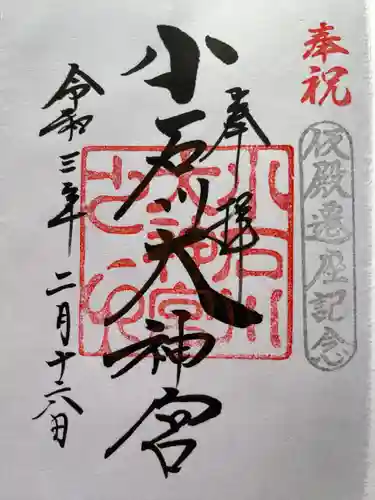 奉祝
仮殿遷座記念
奉拝
小石川大神宮
小石川大神宮
令和三年二月十六日